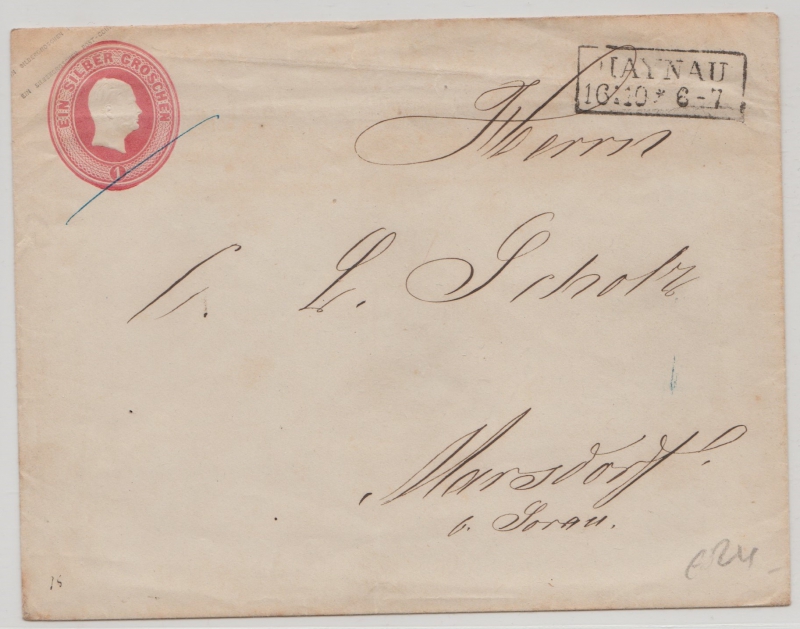 EIN SILBER GROSCHEN
1
HAYNAU
16.10 * 6-7
Herrn
L. Scholz
Marsdorf
b. Sorau.
18